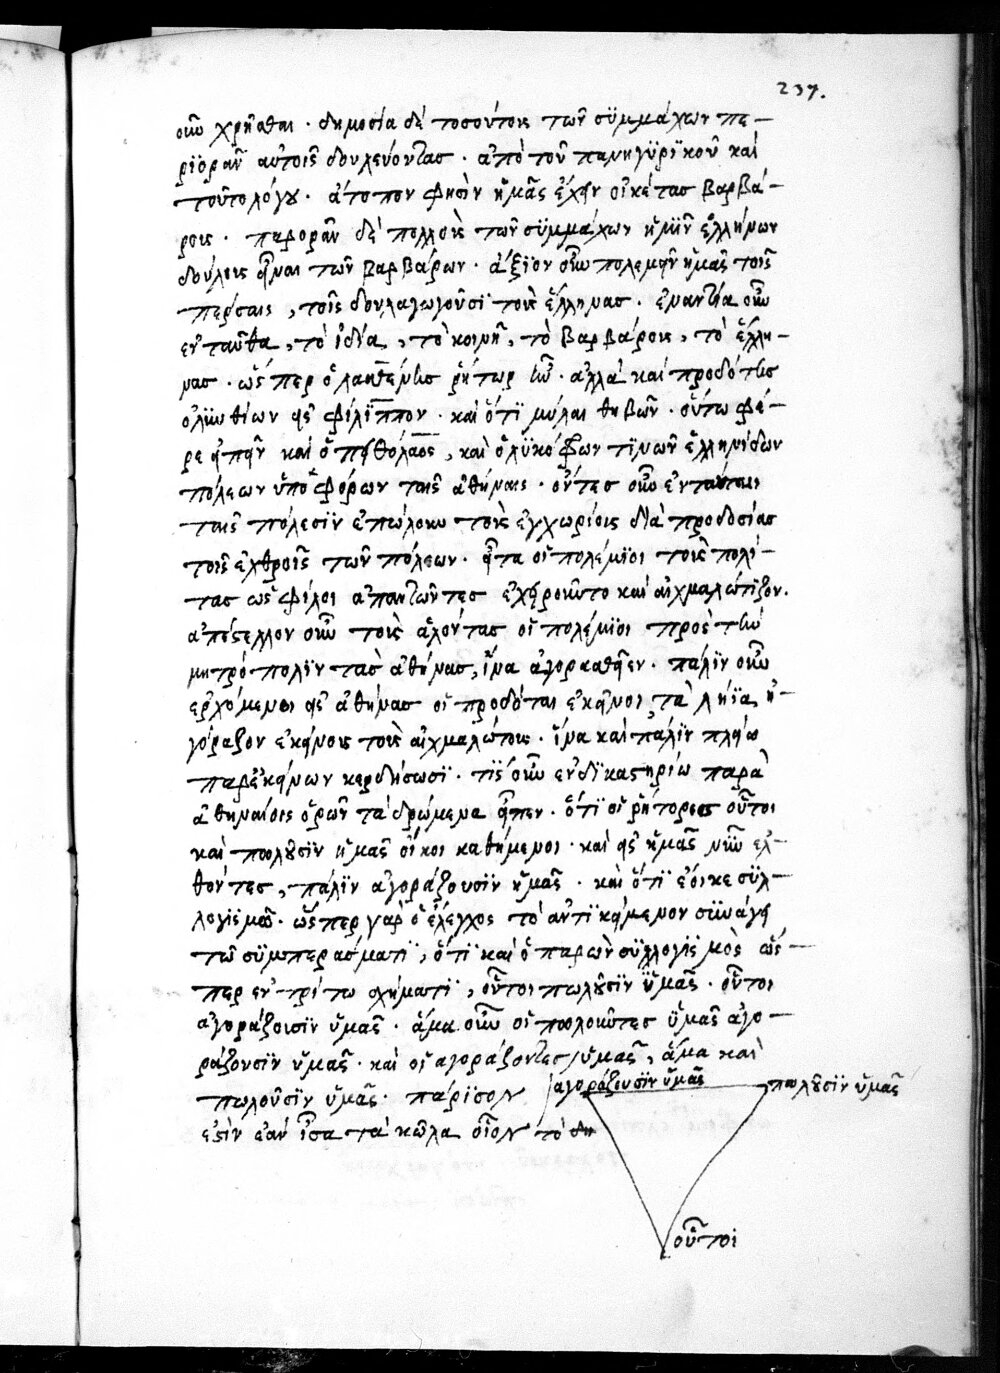 237.
οὖν χρῆσθαι · δημοσία δὲ τοσούτοις τῶν συμμάχων πε-
ριορᾶν αὐτοῖς δουλεύοντας · ἀπὸ τοῦ πανηγυρικοῦ καὶ
τοῦτο λόγου · ἄτοπον φησὶν ἡμᾶς ἔχειν οἰκέτας βαρβά-
ροις · παρορᾶν δὲ πολλοὺς τῶν συμμάχων ἡμῖν ἑλλήνων
δούλους εἶναι τῶν βαρβάρων · ἄξιον οὖν πολεμεῖν ἡμᾶς τοῖς
πέρσαις, τοῖς δουλαγωγοῦσι τοὺς ἕλληνας · ἐναντία οὖν
ἐνταῦθα, τὸ ἰδία, τὸ κοινῆ, τὸ βαρβάροις, τὸ ἕλλη-
νας · ὥσπερ ὁ ῥήτωρ ἦν · ἀλλὰ καὶ προδότης
ὀλυνθίων εἰς φίλιππον · καὶ ὅτι θηβῶν · οὕτω φέ-
ρε εἰπεῖν καὶ ὁ πειθόλαος, καὶ ὁ λυκόφρων τινῶν ἑλληνίδων
πόλεων ὑποφόρων ταῖς ἀθήναις · ὄντες οὖν ἐν ταύταις
ταῖς πόλεσιν ἐπώλουν τοὺς ἐγχωρίους διὰ προδοσίας
τοῖς ἐχθροῖς τῶν πόλεων · εἶτα οἱ πολέμιοι τοῖς πολί-
τας ὡς φίλοι ἀπαντῶντες ἐχειροῦντο καὶ αἰχμαλώτιζον.
ἀπέστελλον οὖν τοὺς ἁλόντας οἱ πολέμιοι πρὸς τὴν
μητρόπολιν τὰς ἀθήνας, ἵνα ἀγορασθεῖεν · πάλιν οὖν
ἐρχόμενοι εἰς ἀθήνας οἱ προδόται ἐκεῖνοι, τὰ λήϊα, ἠ-
γόραζον ἐκείνους τοὺς αἰχμαλώτους · ἵνα καὶ πάλιν πλείω
παρ' ἐκείνων κερδήσωσι · τὶς οὖν ἐν δικαστηρίω παρὰ
ἀθηναίοις ὁρῶν τὰ δρώμενα εἶπεν · ὅτι οἱ ῥήτορες οὗτοι
καὶ πωλοῦσιν ἡμᾶς οἴκοι καθήμενοι · καὶ εἰς ἡμᾶς νῦν ἐλ-
θόντες, πάλιν ἀγοράζουσιν ἡμᾶς · καὶ ὅτι ἔοικε συλ-
λογισμῶ · ὥσπερ γὰρ ὁ ἔλεγχος τὸ ἀντικείμενον συνάγει
τῶ συμπεράσματι, ὅτι καὶ ὁ παρὼν συλλογισμὸς ὥσ-
περ ἐν τρίτω σχήματι, οὗτοι πωλοῦσιν ὑμᾶς · οὗτοι
ἀγοράζουσιν ὑμᾶς · ἅμα οὖν οἱ πωλοῦντες ὑμᾶς ἀγο-
ράζουσιν ὑμᾶς · καὶ οἱ ἀγοράζοντες ὑμᾶς, ἅμα καὶ
πωλοῦσιν ὑμᾶς · πάρισον
ἐστὶν ἐὰν ἴσα τὰ κῶλα οἷον τὸ δη
ἀγοράζουσιν ὑμᾶς
πωλοῦσιν ὑμᾶς
οὗτοι